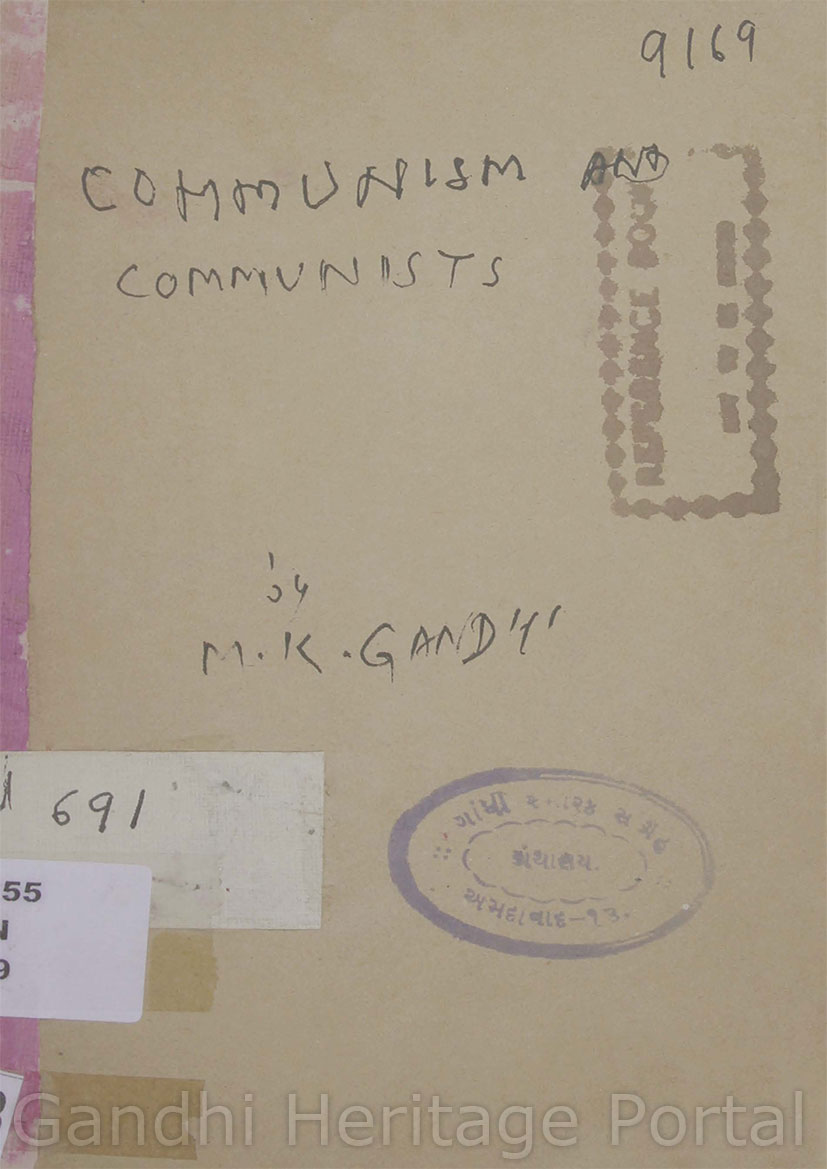 9169
COMMUNISM AND
COMMUNISTS
REFERENCE
by
M.K.GANDHI
691
55
N
9
ગાંધી સ્મારક સંગ્રહ
ગ્રંથાલય.
અમદાવાદ-૧૩.
Gandhi Heritage Portal